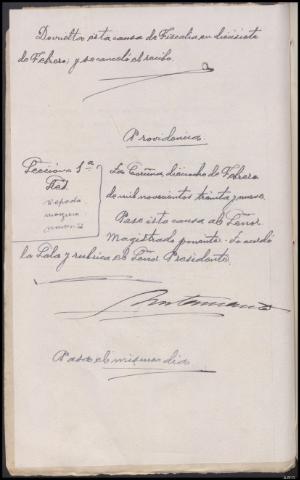 Devuelta esta causa de Fiscalia en diecisiete
de Febrero, y se canceló el recibo.
Providencia.
Sección 1ª
La Coruña, dieciocho de Febrero
de mil novecientos treinta y nueve.
Pase esta causa al Señor
Magistrado ponente. Lo acordó
la Sala y rubrica el Señor Presidente.
Pasa el mismo dia